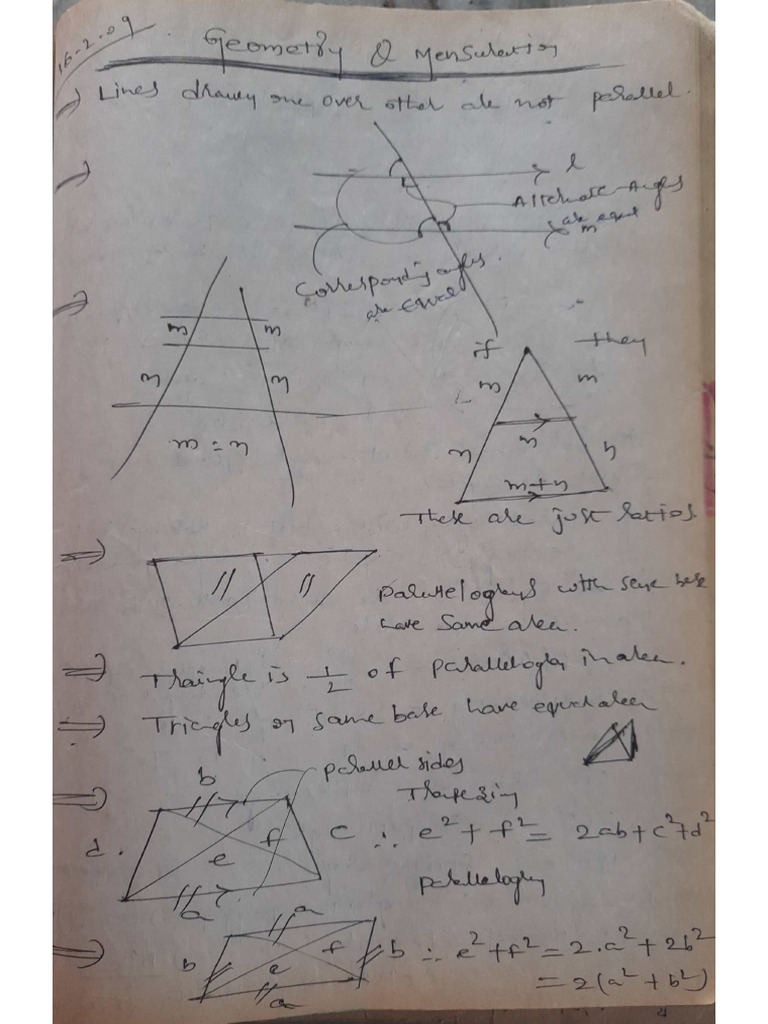 16-2-09
Geometry & Mensuration
Lines drawn one over other are not parallel.
l
Alternate Angles
are equal
m
Corresponding angles
are equal
m m
n n
m = n
if they
m m
n
n n
m+n
These are just ratios.
Parallelograms with same base
have same area.
Traingle is 1/2 of parallelogram in area.
Triangles on same base have equal area
b parallel sides
Trapezium
d. e f c ∴ e² + f² = 2ab + c² + d²
a
parallelogram
a
b e f b ∴ e² + f² = 2.a² + 2b²
a = 2(a² + b²)